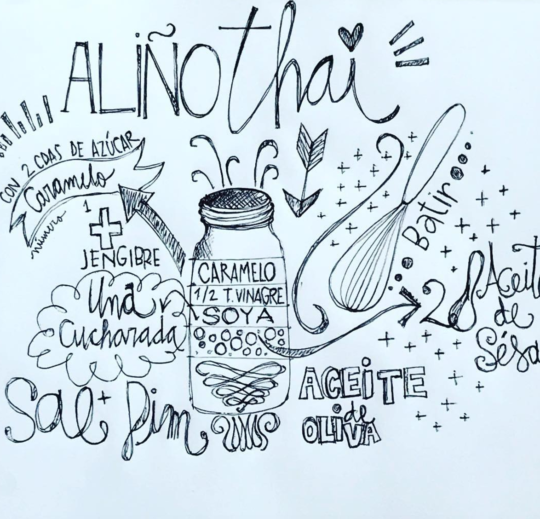 ALIÑO thai
CON 2 CDAS DE AZÚCAR
Caramelo
número 1
+
JENGIBRE
Una
Cucharada
CARAMELO
1/2 T. VINAGRE
SOYA
Batir
2
Aceite
de
Sésa
Sal + Pim
ACEITE
de
OLIVA